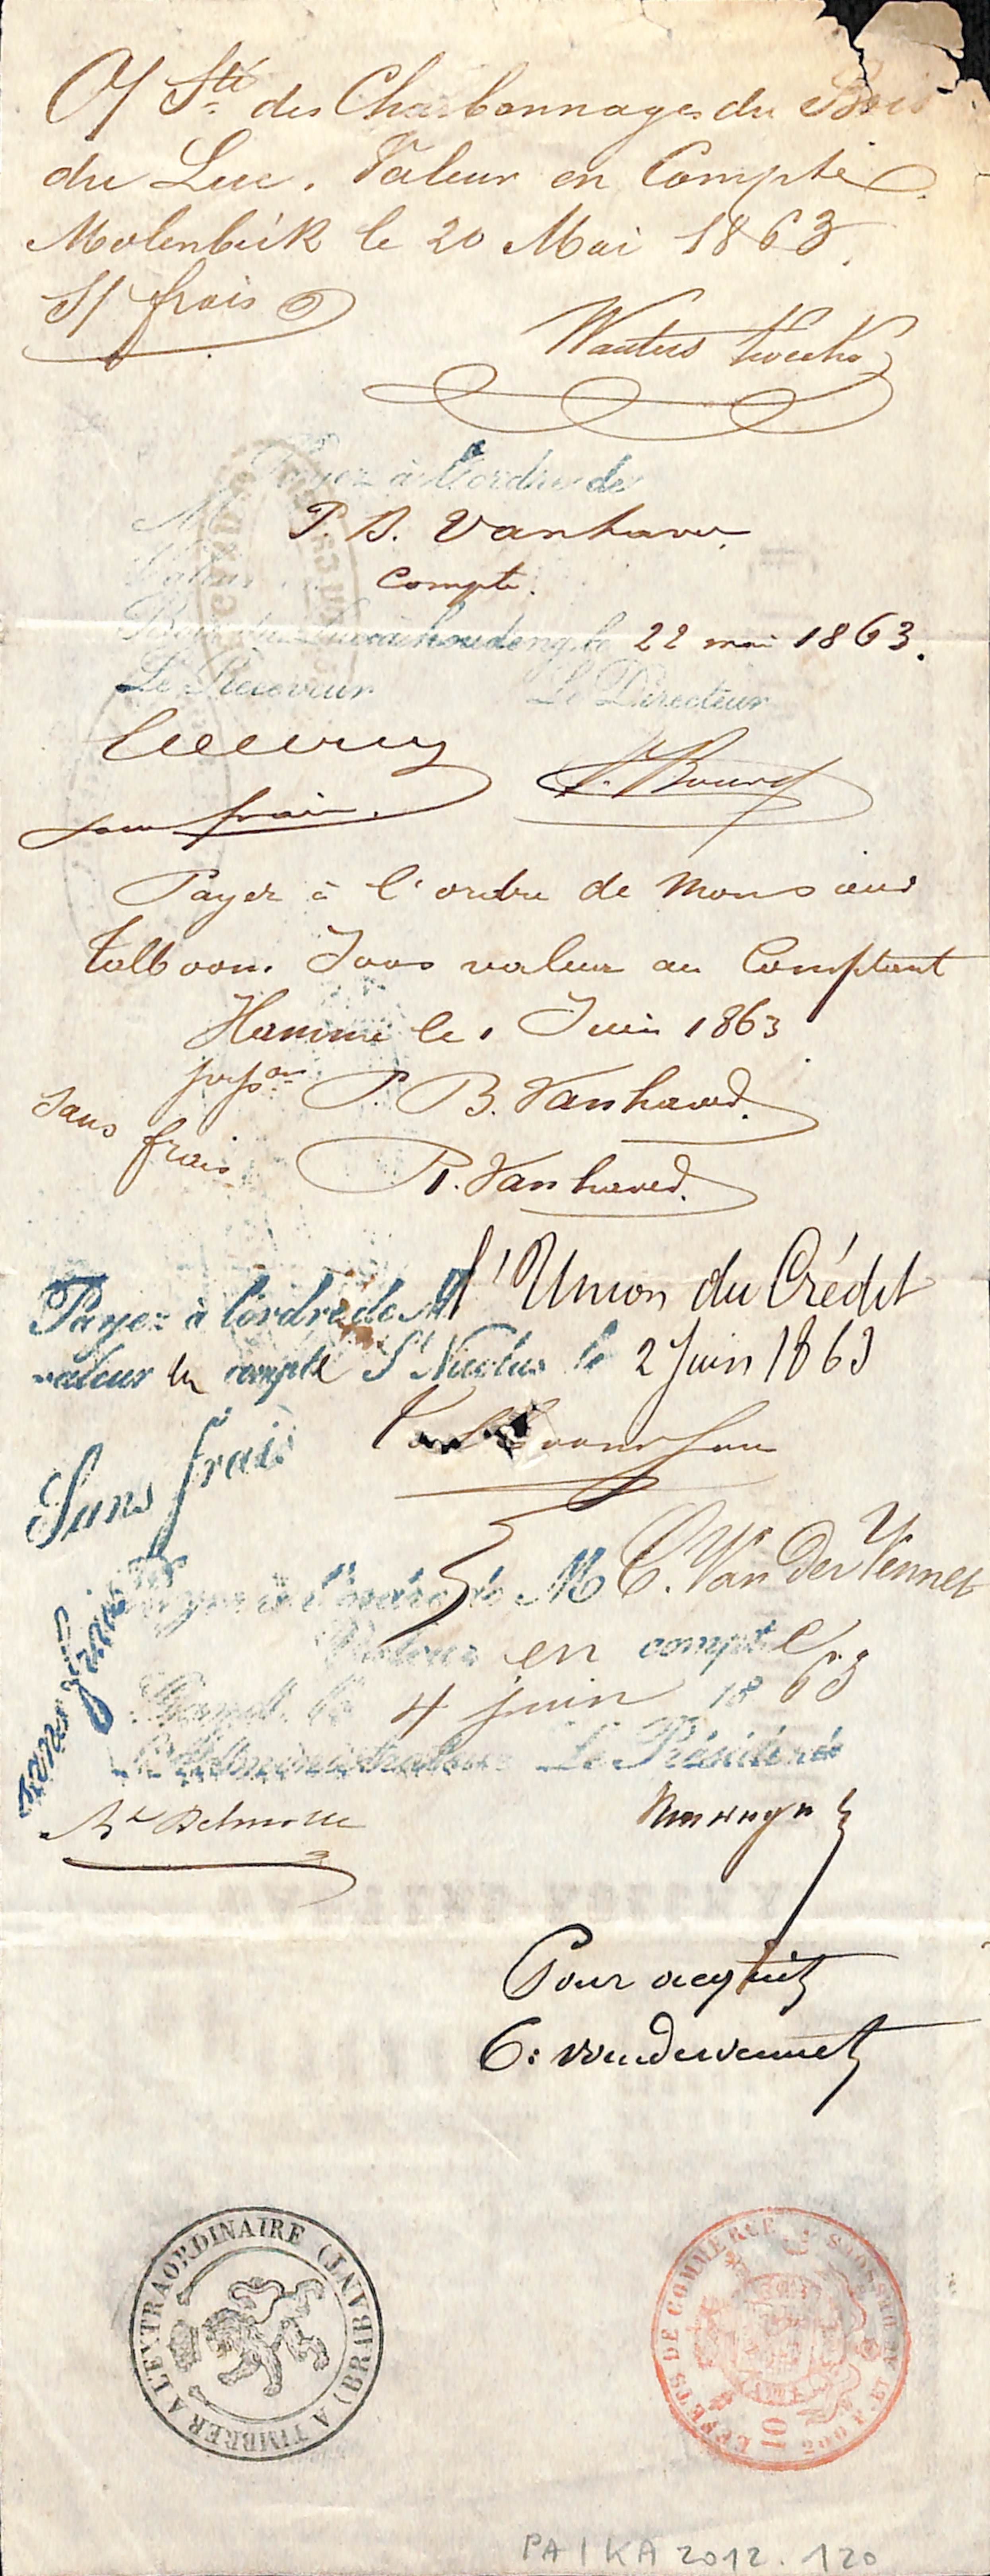 O/ Sté des Charbonnages du Bois
du Luc. Valeur en Compte
Molenbéék le 20 Mai 1863.
S/ frais
Wauters
Payez à l'ordre de
M P. B. Vanhaver
Valeur compte.
Bois du Luc à houdeng le 22 mai 1863.
Le Receveur Le Directeur
sans frais.
Payez à l'ordre de Monsieur
Talboom. Joos valeur au Comptant
Hamme le 1 Juin 1863
P. B. Vanhaver
Sans
frais
P. Vanhaver
Payez à l'ordre de M l'Union du Crédit
valeur en compte St Nicolas le 2 Juin 1863
Sans frais
Payez à l'ordre de M C. Van Der Vennet
Valeur en compte
Gand. le 4 juin 1863
L'Administrateur Le Président
Sans frais
Pour acquit
C: vandervennet
TIMBRER A L'EXTRAORDINAIRE (BRABANT) A
EFFETS DE COMMERCE
10
PA / KA 2012. 120